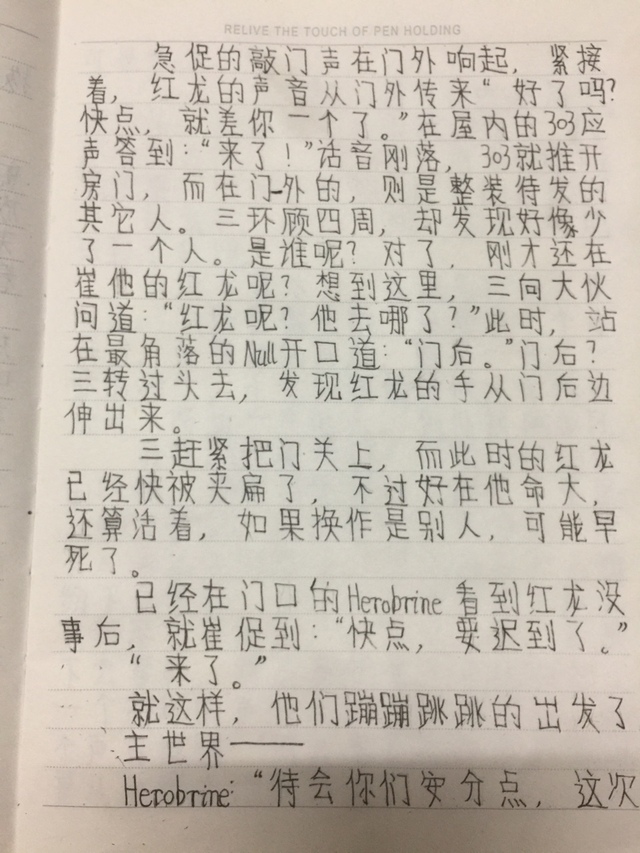 RELIVE THE TOUCH OF PEN HOLDING
急促的敲门声在门外响起，紧接
着，红龙的声音从门外传来“好了吗？
快点，就差你一个了。”在屋内的303应
声答到：“来了！”话音刚落，303就推开
房门，而在门外的，则是整装待发的
其它人。三环顾四周，却发现好像少
了一个人。是谁呢？对了，刚才还在
崔他的红龙呢？想到这里，三向大伙
问道：“红龙呢？他去哪了？”此时，站
在最角落的Null开口道：“门后。”门后？
三转过头去，发现红龙的手从门后边
伸出来。
三赶紧把门关上，而此时的红龙
已经快被夹扁了，不过好在他命大，
还算活着，如果换作是别人，可能早
死了。
已经在门口的Herobrine看到红龙没
事后，就崔促到：“快点，要迟到了。”
“来了。”
就这样，他们蹦蹦跳跳的出发了
主世界——
Herobrine：“待会你们安分点，这次